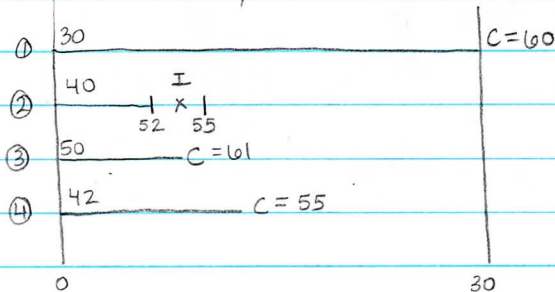 ① 30 C = 60
② 40 I
x
52 55
③ 50 C = 61
④ 42 C = 55
0 30